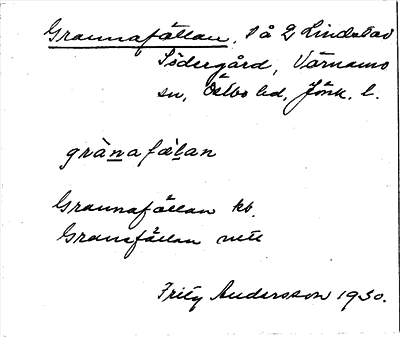 Grannafällan, på 2 Lindstad
Södergård, Värnamo
sn, Östbo hd, Jönk. l.
gràn̲afæ̀l̲an
Grannafällan kb.
Granafällan
Fritz Andersson 1930.